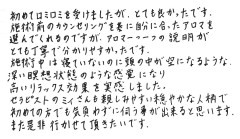 初めてロミロミを受けましたが、とても良かったです。
施術前のカウンセリングを基に自分に合ったアロマを
選んでくれるのですが、アロマ一つ一つの説明が
とても丁寧で分かりやすかったです。
施術中は寝ていないのに頭の中が空になるような、
深い瞑想状態のような感覚になり
高いリラックス効果を実感しました。
セラピストのミィさんも親しみやすい穏やかな人柄で
初めての方でも気負わずに伺う事が出来ると思います。
また是非行かせて頂きたいです。